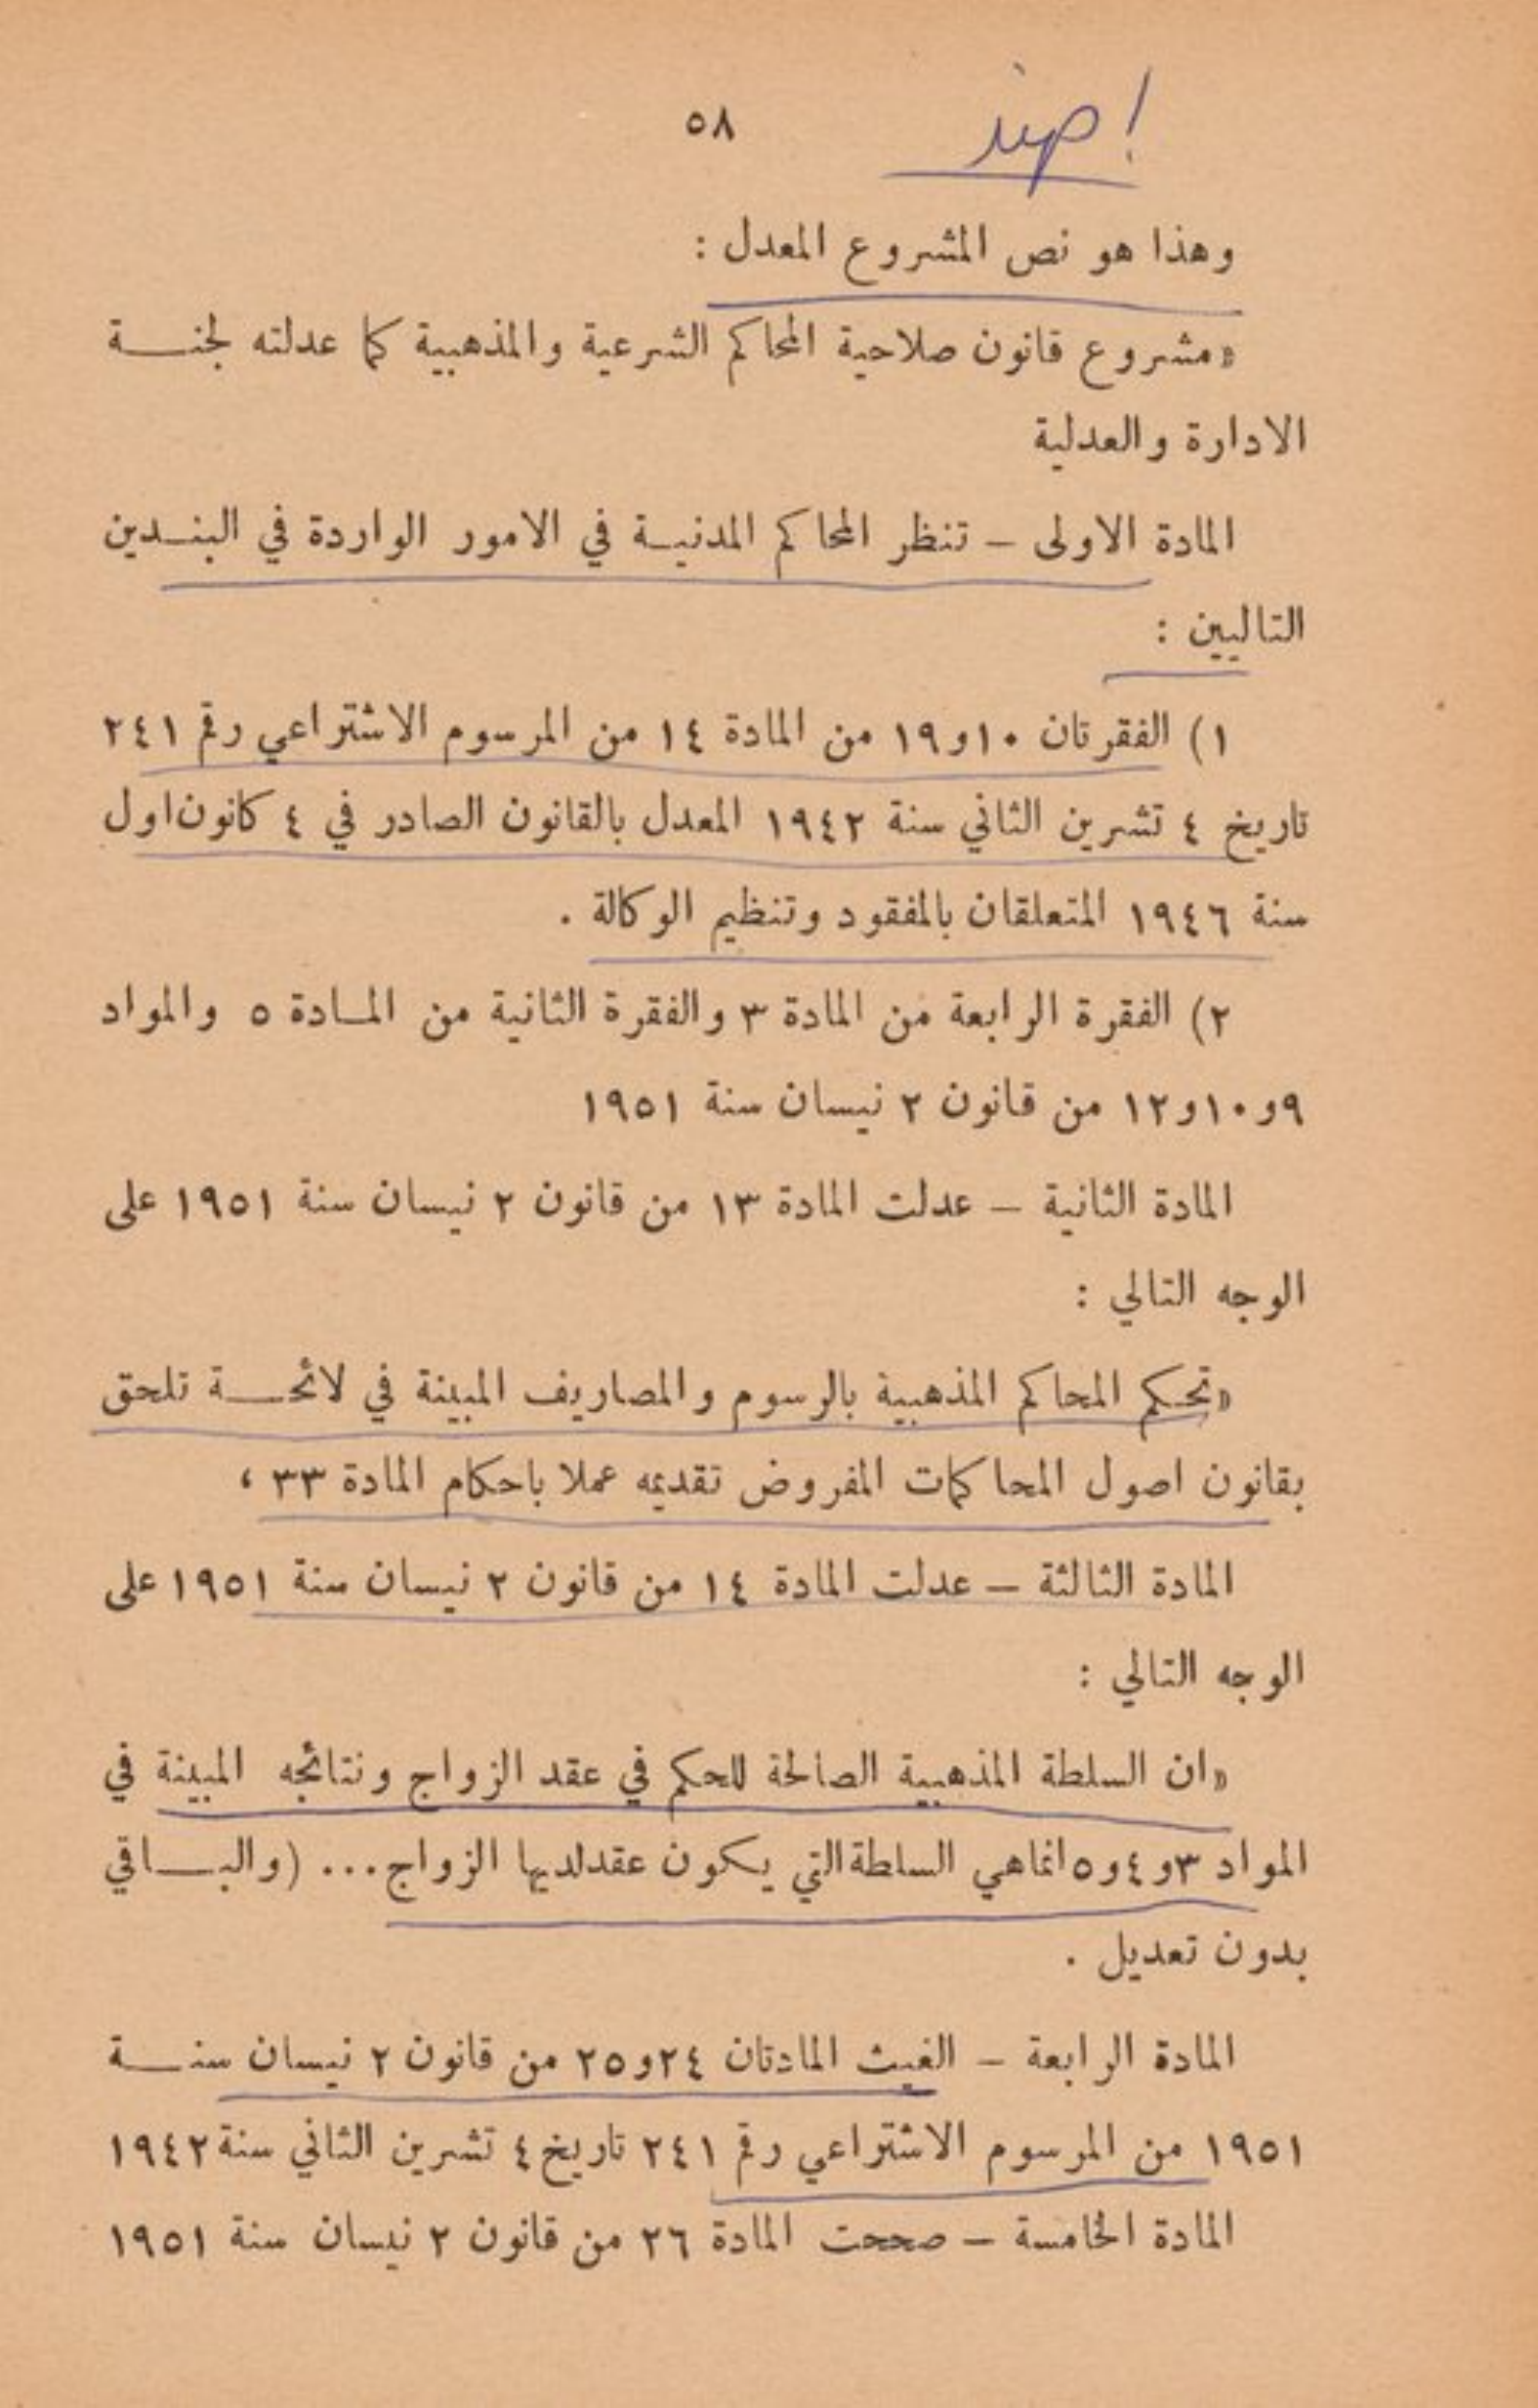 ٥٨
وهذا هو نص المشروع المعدل :
«مشروع قانون صلاحية المحاكم الشرعية والمذهبية كما عدلته لجنـــة
الادارة والعدلية
المادة الاولى – تنظر المحاكم المدنيــة في الامور الواردة في البنــدين
التاليين :
١) الفقرتان ١٠و١٩ من المادة ١٤ من المرسوم الاشتراعي رقم ٢٤١
تاريخ ٤ تشرين الثاني سنة ١٩٤٢ المعدل بالقانون الصادر في ٤ كانون اول
سنة ١٩٤٦ المتعلقان بالمفقود وتنظيم الوكالة .
٢) الفقرة الرابعة من المادة ٣ والفقرة الثانية من المــادة ٥ والمواد
٩و١٠و١٢ من قانون ٢ نيسان سنة ١٩٥١
المادة الثانية – عدلت المادة ١٣ من قانون ٢ نيسان سنة ١٩٥١ على
الوجه التالي :
«تحكم المحاكم المذهبية بالرسوم والمصاريف المبينة في لائحـــة تلحق
بقانون اصول المحاكمات المفروض تقديمه عملا باحكام المادة ٣٣ ،
المادة الثالثة – عدلت المادة ١٤ من قانون ٢ نيسان سنة ١٩٥١ على
الوجه التالي :
«ان السلطة المذهبية الصالحة للحكم في عقد الزواج ونتائجه المبينة في
المواد ٣و٤و٥ انما هي السلطة التي يكون عقد لديها الزواج... (والبــاقي
بدون تعديل .
المادة الرابعة – الغيت المادتان ٢٤و٢٥ من قانون ٢ نيسان سنـــة
١٩٥١ من المرسوم الاشتراعي رقم ٢٤١ تاريخ ٤ تشرين الثاني سنة ١٩٤٢
المادة الخامسة – صححت المادة ٢٦ من قانون ٢ نيسان سنة ١٩٥١